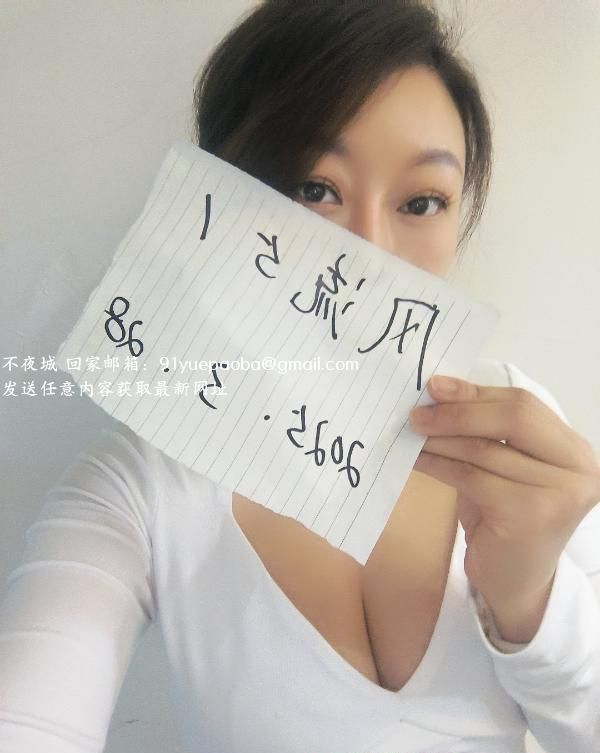 风流51
2025.3.28
不夜城 回家邮箱：91yuepaoba@gmail.com
发送任意内容获取最新网址